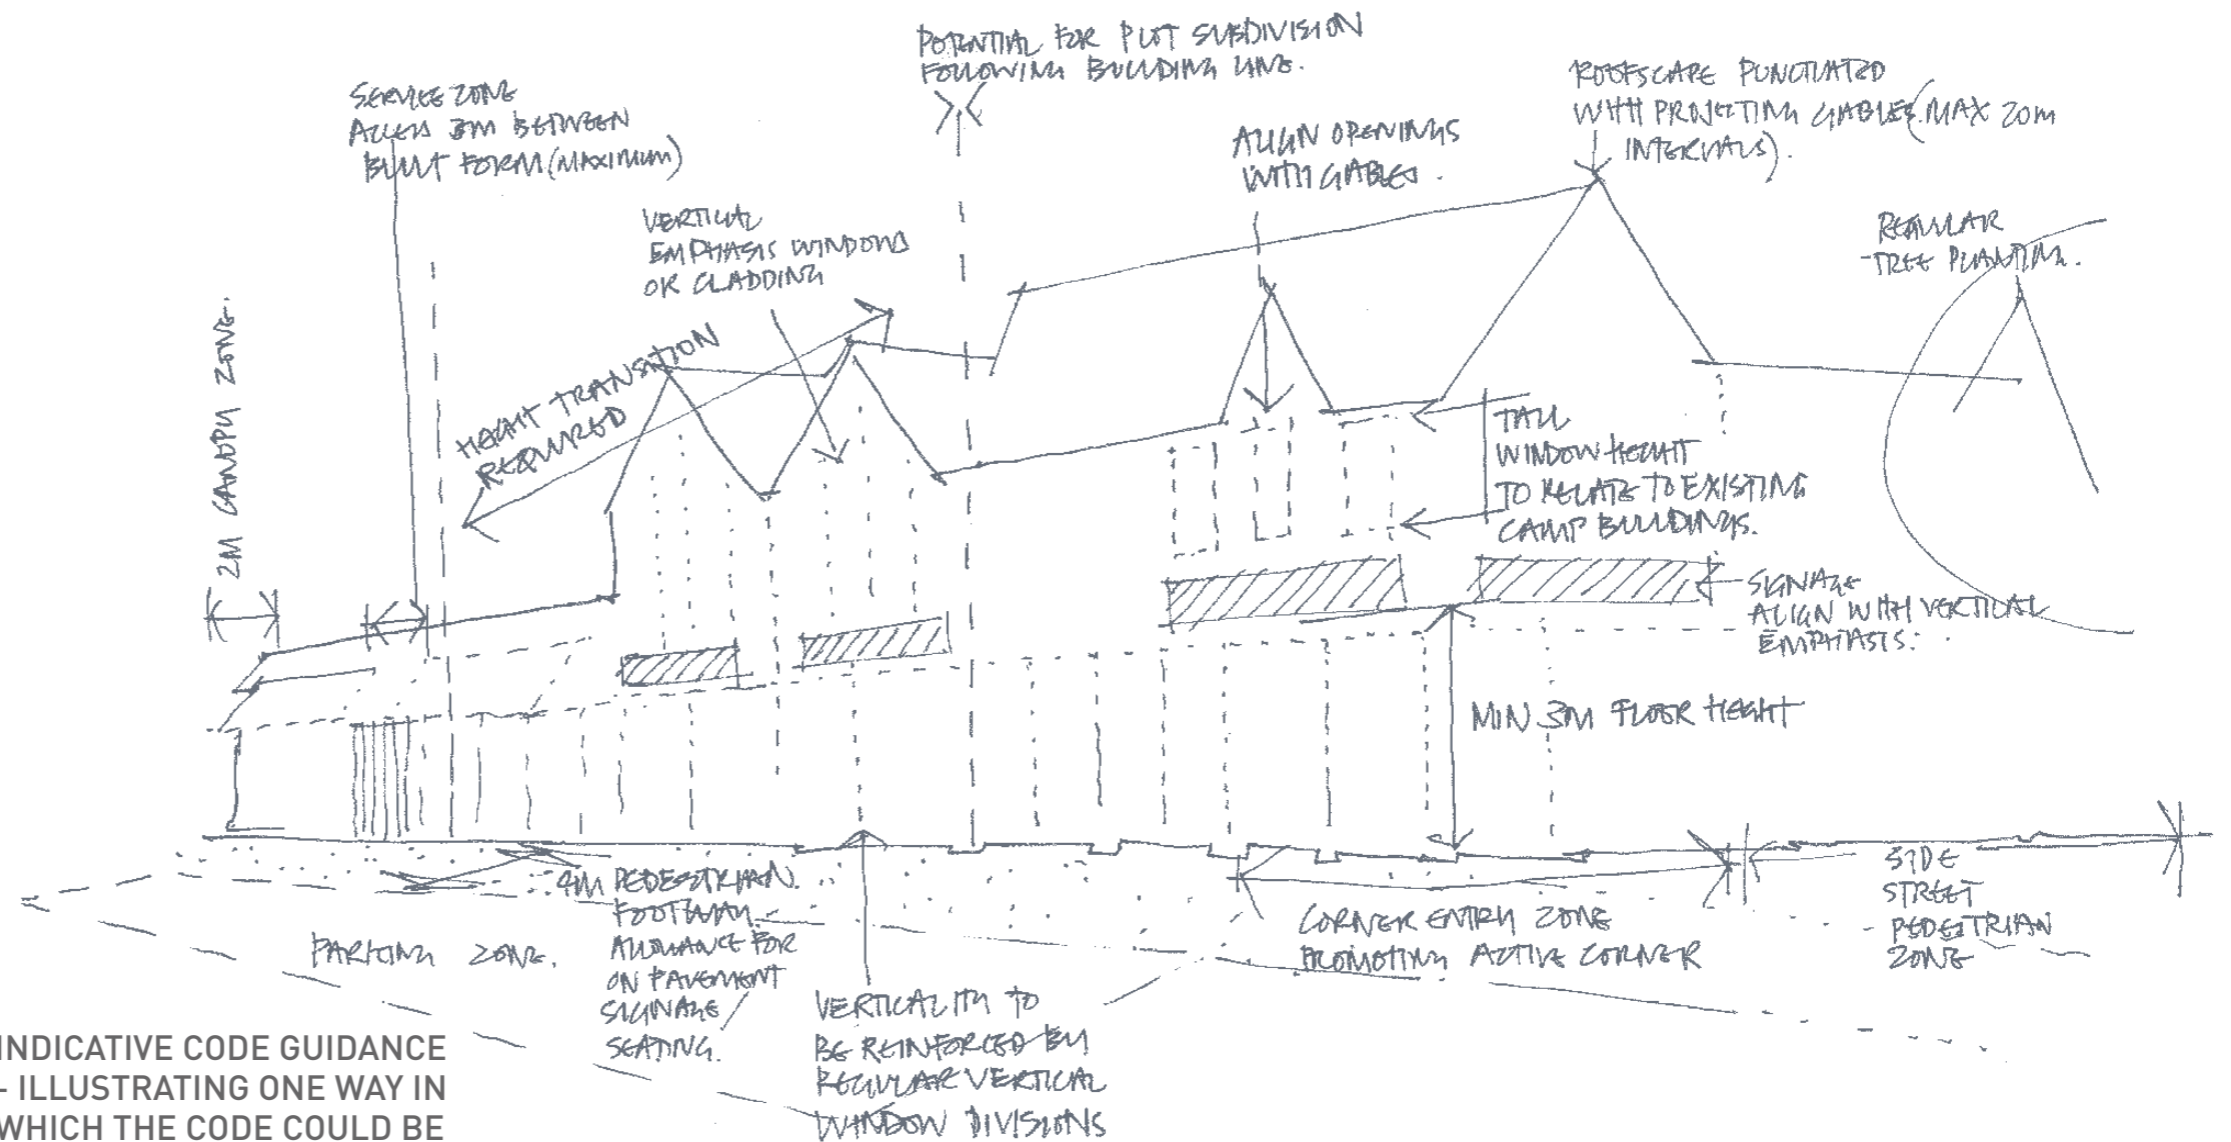 POTENTIAL FOR PLOT SUBDIVISION
FOLLOWING BUILDING LINE.
SERVICE ZONE
ACCESS 3M BETWEEN
BUILT FORM (MAXIMUM)
ROOFSCAPE PUNCTUATED
WITH PROJECTING GABLES (MAX 20m
INTERVALS).
ALIGN OPENINGS
WITH GABLES.
VERTICAL
EMPHASIS WINDOWS
OR CLADDING
REGULAR
TREE PLANTING.
2M CANOPY ZONE.
HEIGHT TRANSITION
REQUIRED
TALL
WINDOW HEIGHT
TO RELATE TO EXISTING
CAMP BUILDINGS.
SIGNAGE
ALIGN WITH VERTICAL
EMPHASIS.
MIN 3M FLOOR HEIGHT
4M PEDESTRIAN
FOOTWAY
ALLOWANCE FOR
ON PAVEMENT
SIGNAGE /
SEATING.
PARKING ZONE.
CORNER ENTRY ZONE
PROMOTING ACTIVE CORNER
SIDE
STREET
PEDESTRIAN
ZONE
VERTICALITY TO
BE REINFORCED BY
REGULAR VERTICAL
WINDOW DIVISIONS
INDICATIVE CODE GUIDANCE
- ILLUSTRATING ONE WAY IN
WHICH THE CODE COULD BE